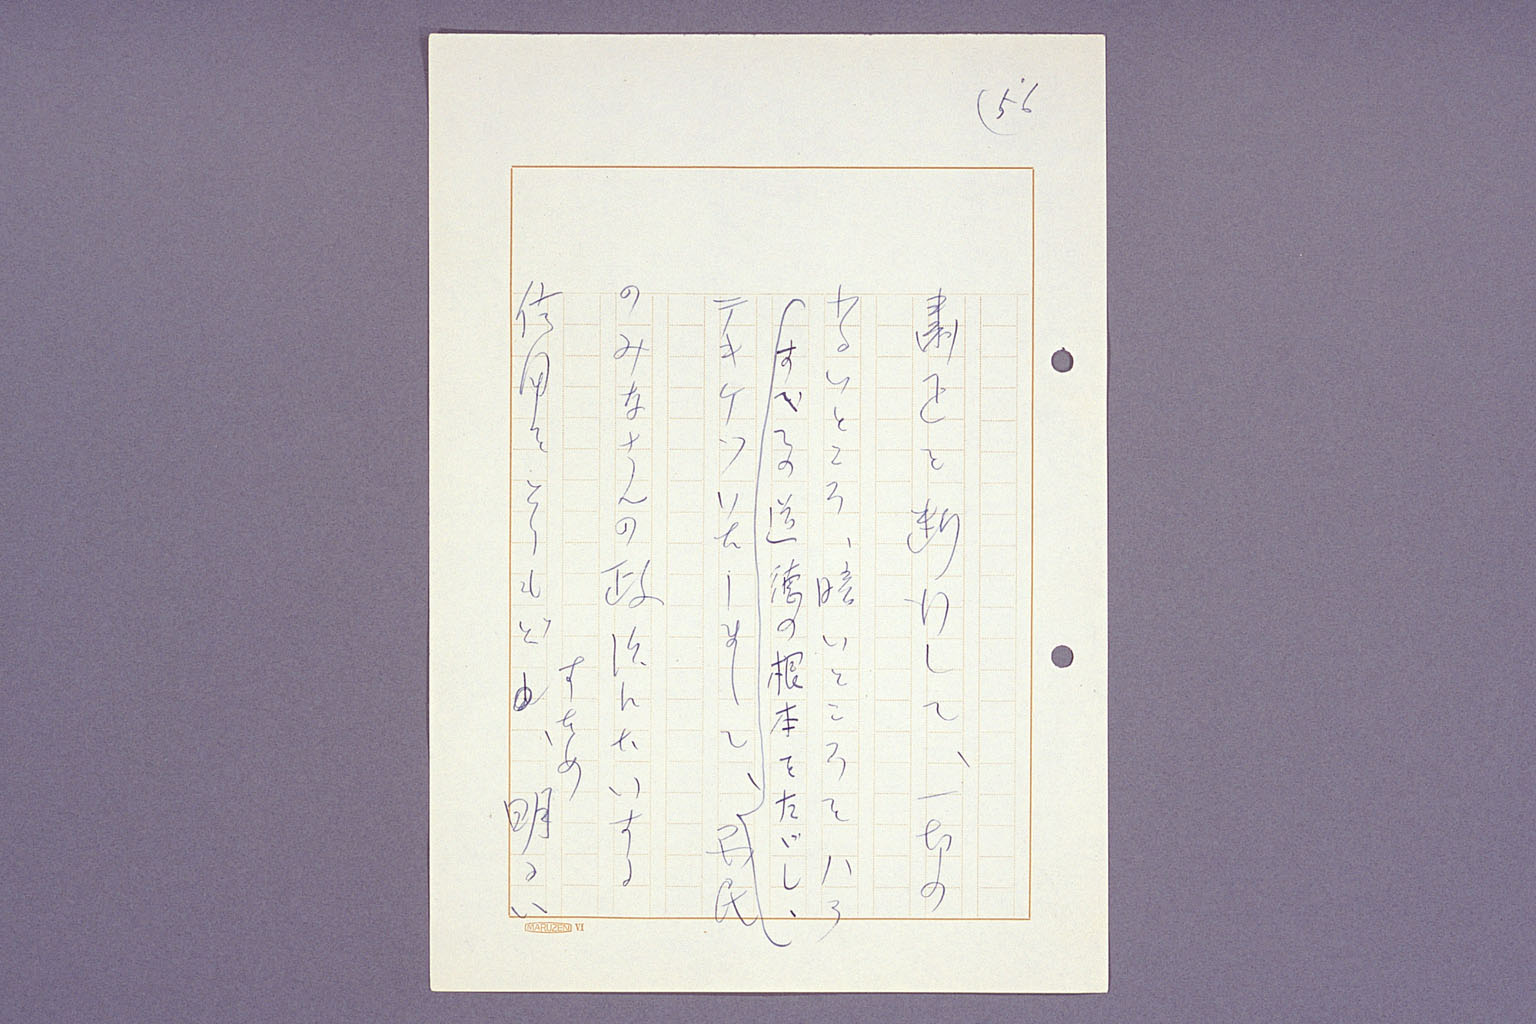 (56
粛正を断行して、一切の
わるいところ、暗いところをハラ
すべての道徳の根本をただし、
テキケツいたしまして、国民
のみなさんの政治にたいする
信用をとりもどすため、明るい
MARUZEN VI